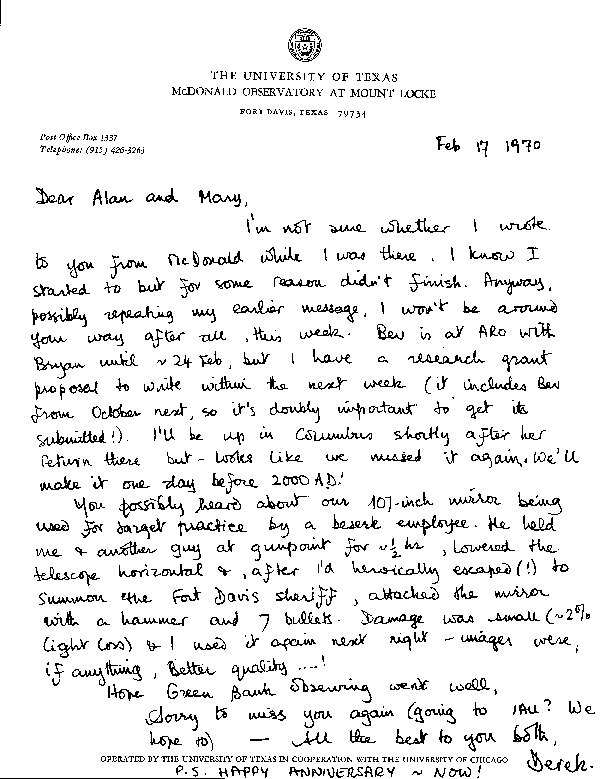 THE UNIVERSITY OF TEXAS
McDONALD OBSERVATORY AT MOUNT LOCKE
FORT DAVIS, TEXAS 79734
Post Office Box 1337
Telephone: (915) 426-3263
Feb 17 1970
Dear Alan and Mary,
I'm not sure whether I wrote
to you from McDonald while I was there. I know I
started to but for some reason didn't finish. Anyway,
possibly repeating my earlier message, I won't be around
your way after all, this week. Bev is at ARO with
Bryan until ~24 Feb, but I have a research grant
proposal to write within the next week (it includes Bev
from October next, so it's doubly important to get it
submitted!). I'll be up in Columbus shortly after her
return there but - looks like we missed it again. We'll
make it one day before 2000 AD!
You possibly heard about our 107-inch mirror being
used for target practice by a beserk employee. He held
me & another guy at gunpoint for ~½ hr, lowered the
telescope horizontal &, after I'd heroically escaped(!) to
summon the Fort Davis sheriff, attacked the mirror
with a hammer and 7 bullets. Damage was small (~2%
light loss) & I used it again next night - images were,
if anything, better quality ....!
Hope Green Bank observing went well,
Sorry to miss you again (going to IAU? We
hope to) — All the best to you both,
Derek.
OPERATED BY THE UNIVERSITY OF TEXAS IN COOPERATION WITH THE UNIVERSITY OF CHICAGO
P.S. HAPPY ANNIVERSARY ~ NOW!